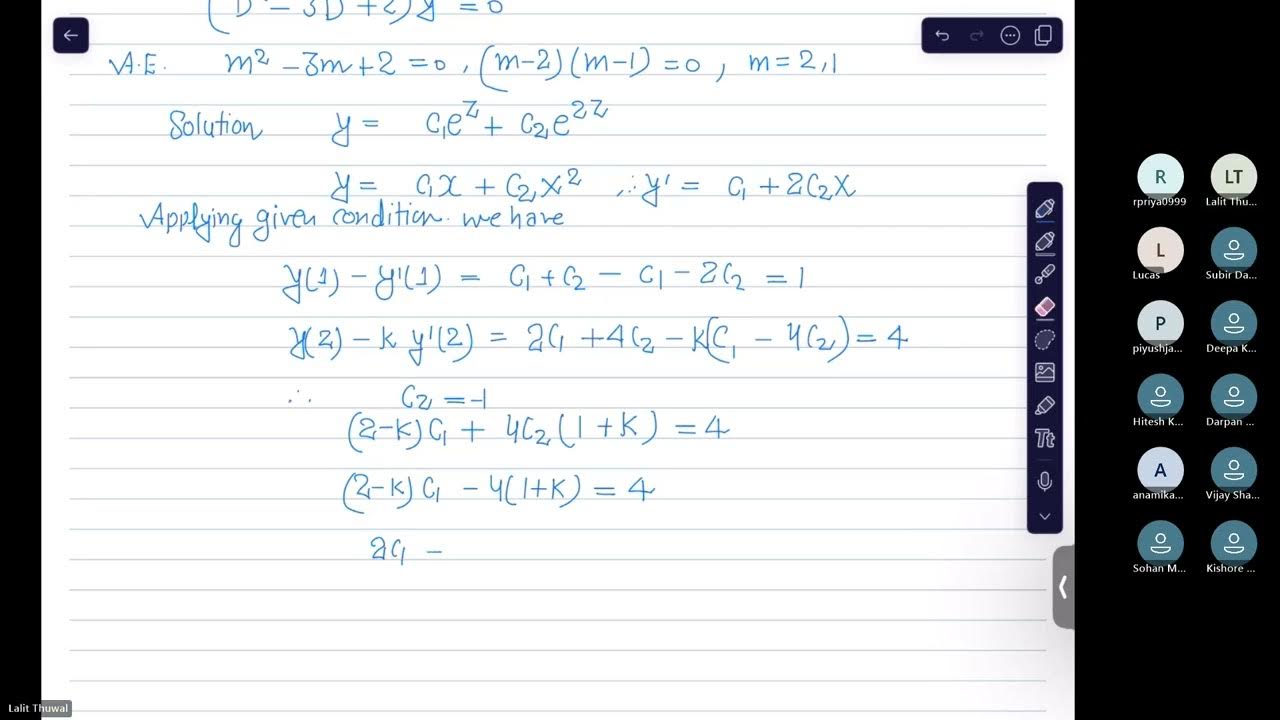 (D² - 3D + 2) y = 0
A.E. m² - 3m + 2 = 0, (m-2)(m-1) = 0, m = 2, 1
Solution y = C₁e^z + C₂e^2z
y = C₁x + C₂x² ∴ y' = C₁ + 2C₂x
Applying given condition. we have
y(1) - y'(1) = C₁ + C₂ - C₁ - 2C₂ = 1
y(2) - k y'(2) = 2C₁ + 4C₂ - k(C₁ - 4C₂) = 4
∴ C₂ = -1
(2-k)C₁ + 4C₂(1+k) = 4
(2-k)C₁ - 4(1+k) = 4
2C₁ -
R LT
rpriya0999 Lalit Thu...
L
Lucas Subir Da...
P
piyushja... Deepa K...
Hitesh K... Darpan ...
A
anamika... Vijay Sha...
Sohan M... Kishore ...
Tt
Lalit Thuwal